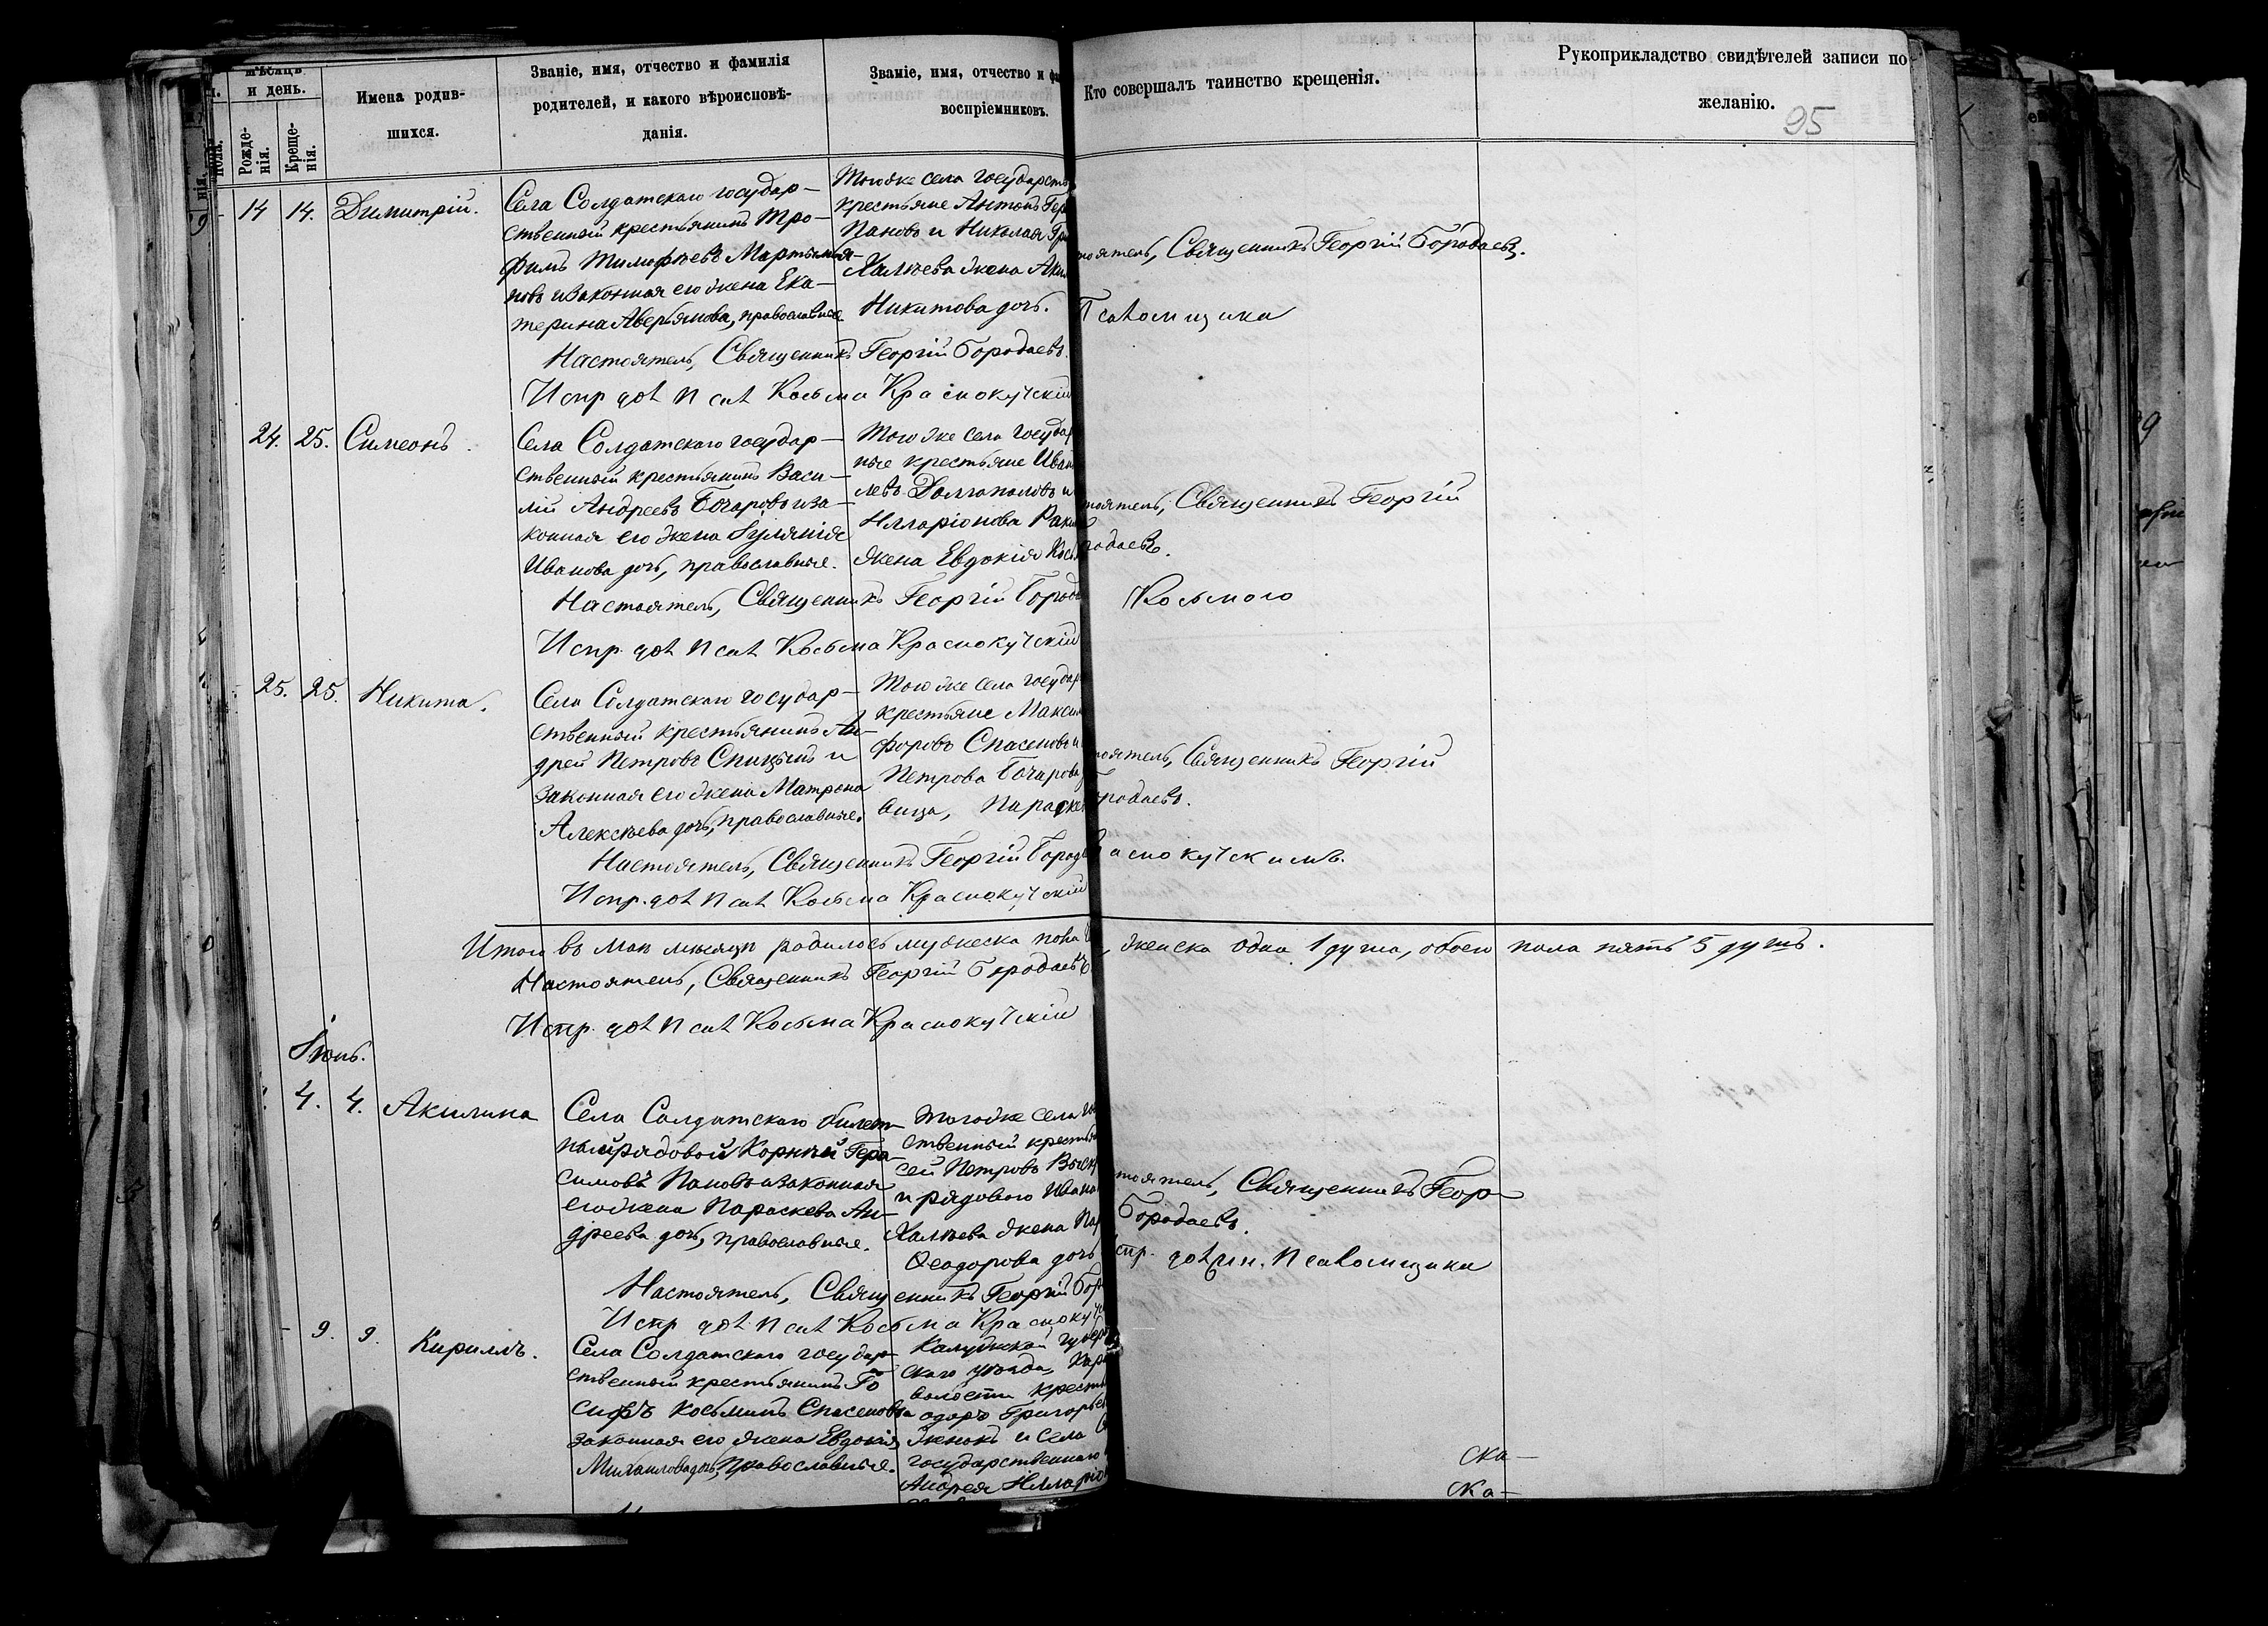 мѣсяцъ
и день.
Рожде-
нія.
Креще-
нія.
Имена родив-
шихся.
Званіе, имя, отчество и фамилія
родителей, и какого вѣроисповѣ-
данія.
Званіе, имя, отчество и
воспріемниковъ.
Кто совершалъ таинство крещенія.
Рукоприкладство свидѣтелей записи по
желанію.
95
14 14. Димитрій.
Села Солдатскаго государ-
ственный крестьянинъ Тро-
фимъ Тимофѣевъ Мартынья-
новъ и законная его жена Ека-
терина Аверьянова, православные
Тогоже села государств
крестьяне Антонъ Гер
Пановъ и Николая Гри
Халѣева жена Аки
Никитова дочь.
Священникъ Георгій Бородаевъ.
Псаломщика
Настоятель, Священникъ Георгій Бородаевъ.
Испр дол Псал Косьма Краснокутскій
24. 25. Симеонъ.
Села Солдатскаго государ-
ственный крестьянинъ Васи-
лій Андреевъ Бочаровъ и за-
конная его жена Іуліянія
Иванова дочь, православные.
Тогоже села государ
ные крестьяне Иван
левъ Долгополовъ и
Илларіонова Раки
жена Евдокія Кос
тоятель, Священникъ Георгій
родаевъ.
Косьмого
Настоятель, Священникъ Георгій Бород
Испр. дол Псал Косьма Краснокутскій
25. 25. Никита.
Села Солдатскаго государ-
ственный крестьянинъ Ан-
дрей Петровъ Спицынъ и
законная его жена Матрона
Алексѣева дочь, православные.
Тогоже села государ
крестьяне Макси
форовъ Спасеновъ и
Петрова Бочарова
вица, Параске
оятель, Священникъ Георгій
родаевъ.
аснокутскимъ.
Настоятель, Священникъ Георгій Бород
Испр. дол Псал Косьма Краснокутскій
Итого въ маѣ мѣсяцѣ родилось мужеска пола , женска одна 1 душа, обоего пола пять 5 душъ.
Настоятель, Священникъ Георгій Бородаевъ
Испр. дол Псал Косьма Краснокутскій
Іюнь.
4. 4. Акилина
Села Солдатскаго билет-
ный рядовой Корнѣй Гера-
симовъ Пановъ и законная
его жена Параскева Ан-
дреева дочь, православные.
Тогоже села го
ственный кресть
сей Петровъ
и рядового Ивана
Халѣева жена Пар
Ѳеодорова дочь
тоятель, Священникъ Геор-
Бородаевъ.
спр. должн. Псаломщика
Настоятель, Священникъ Георгій Бор
Испр дол Псал Косьма Красноку
9. 9. Кириллъ.
Села Солдатскаго государ-
ственный крестьянинъ Іо-
сифъ Косьминъ Спасеновъ
законная его жена Евдокія
Михаилова дочь, православные.
Калужской губер
скаго уѣзда,
волости крест
одоръ Григорьев
и села
государственнаго
Андрея Илларіо
ска-
ска-